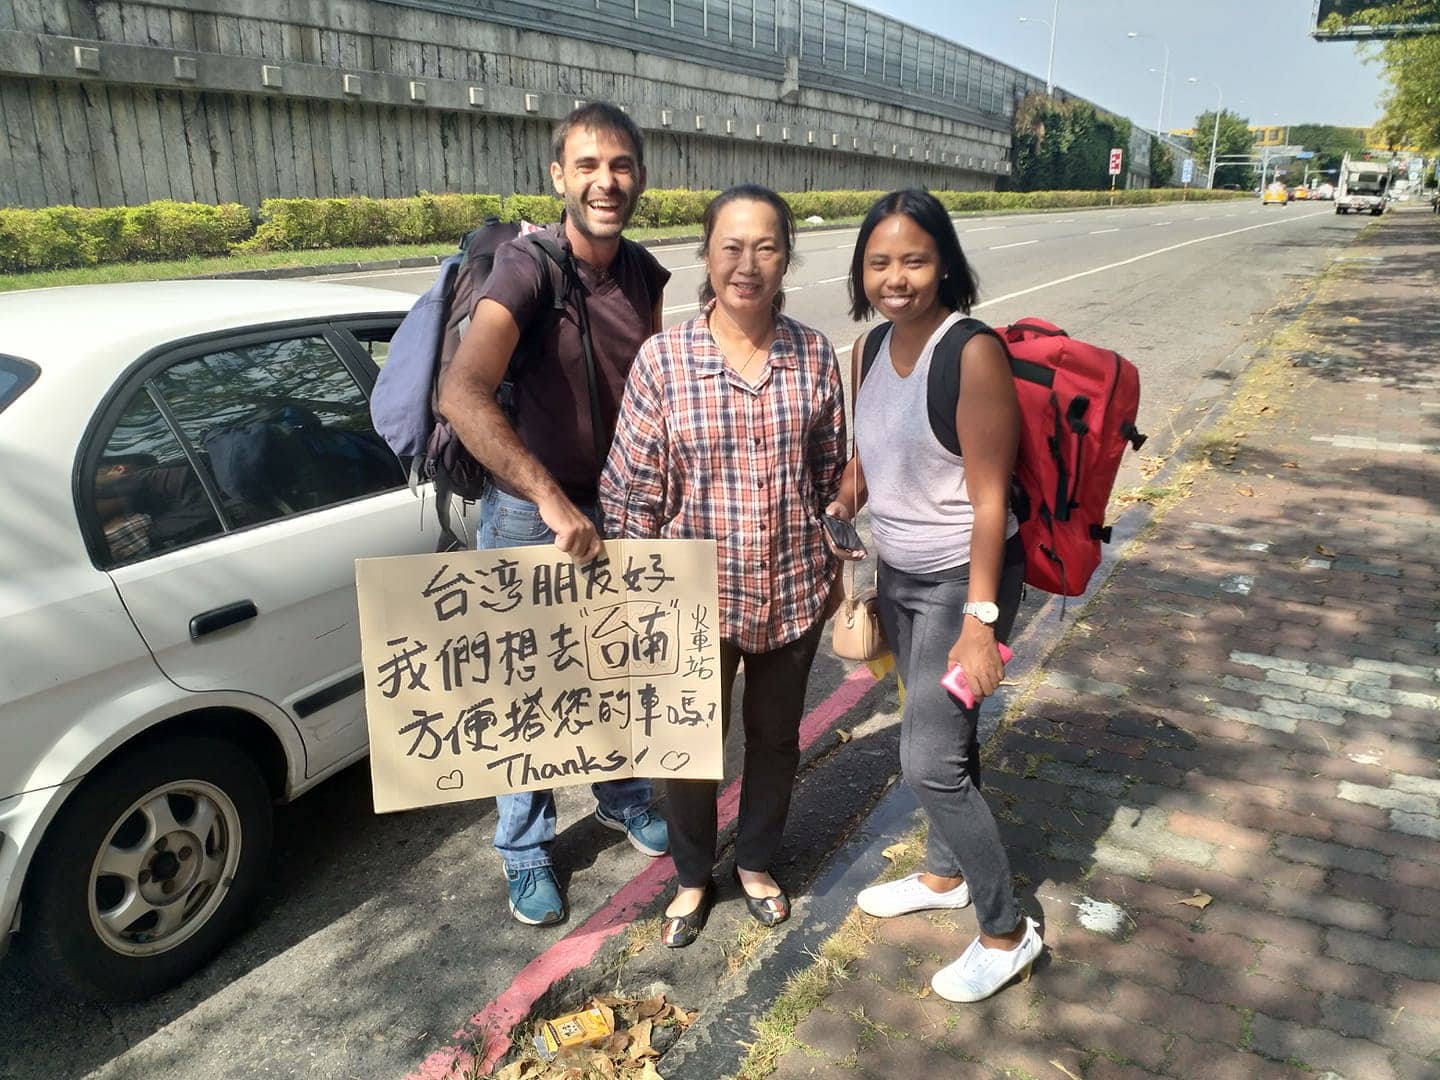 台灣朋友好
我們想去"台南"火車站
方便搭您的車嗎?
♡ Thanks! ♡